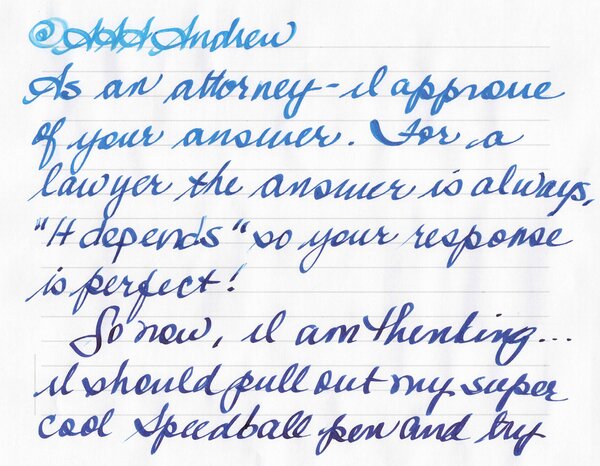 @AAAndrew
As an attorney - I approve
of your answer. For a
lawyer the answer is always,
"It depends" so your response
is perfect!
So now, I am thinking...
I should pull out my super
cool Speedball pen and try